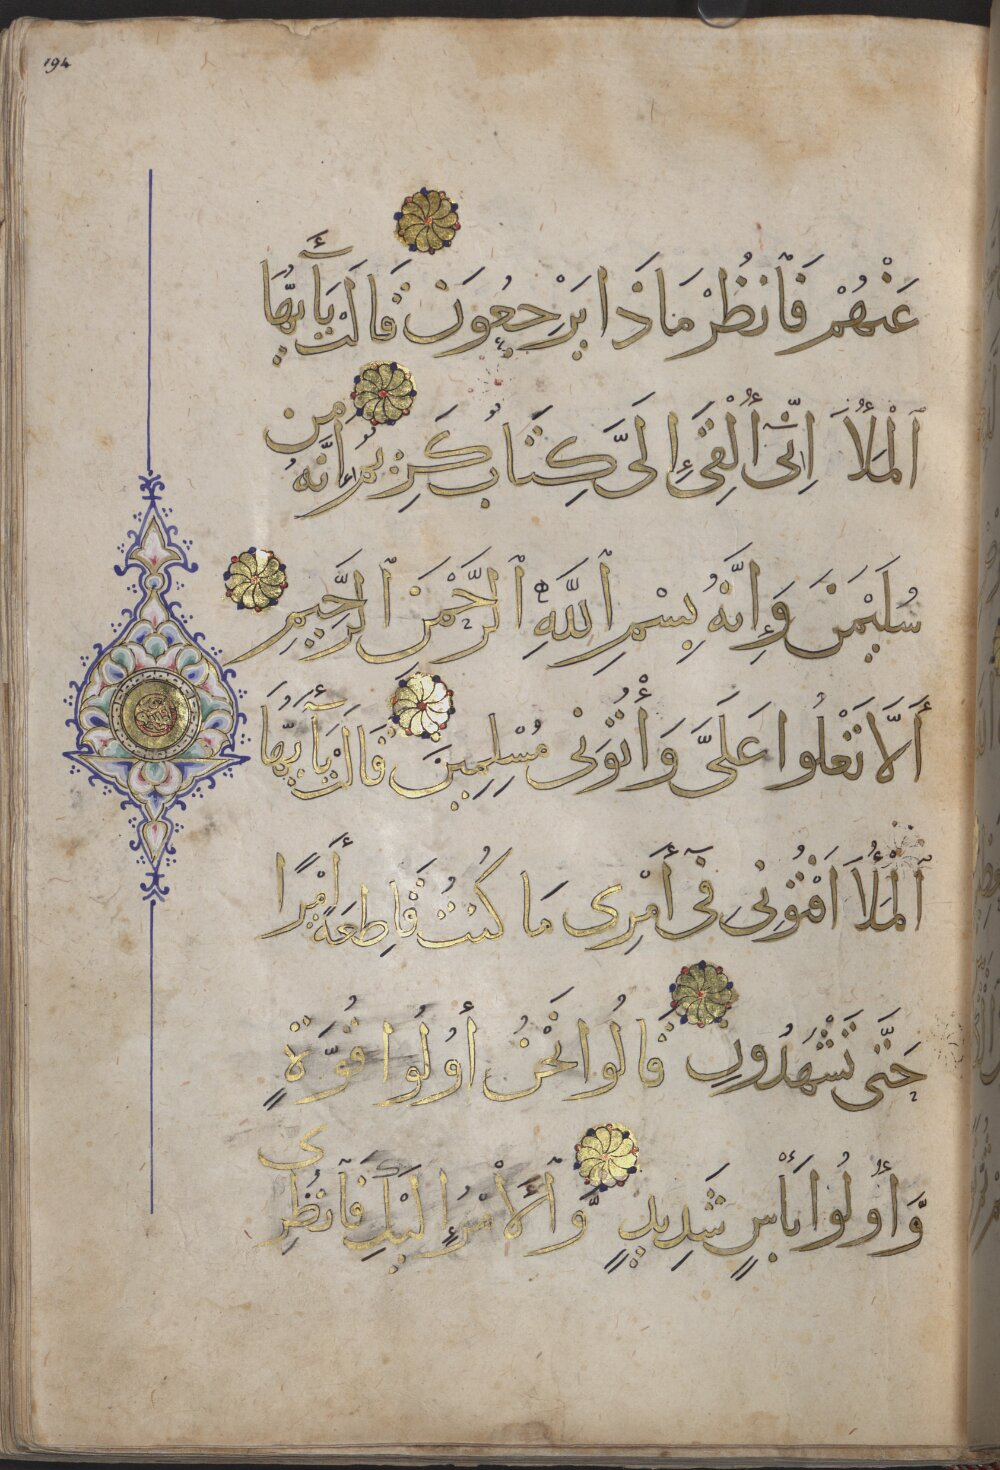 194
عَنْهُمْ فَٱنظُرْ مَاذَا يَرْجِعُونَ قَالَتْ يَٰٓأَيُّهَا
ٱلْمَلَؤُا۟ إِنِّىٓ أُلْقِىَ إِلَىَّ كِتَٰبٌ كَرِيمٌ إِنَّهُۥ مِن
سُلَيْمَٰنَ وَإِنَّهُۥ بِسْمِ ٱللَّهِ ٱلرَّحْمَٰنِ ٱلرَّحِيمِ
أَلَّا تَعْلُوا عَلَىَّ وَأْتُونِى مُسْلِمِينَ قَالَتْ يَٰٓأَيُّهَا
ٱلْمَلَؤُا۟ أَفْتُونِى فِىٓ أَمْرِى مَا كُنتُ قَاطِعَةً أَمْرًا
حَتَّىٰ تَشْهَدُونِ قَالُوا نَحْنُ أُولُوا قُوَّةٍ
وَأُولُوا بَأْسٍ شَدِيدٍ وَٱلْأَمْرُ إِلَيْكِ فَٱنظُرِى